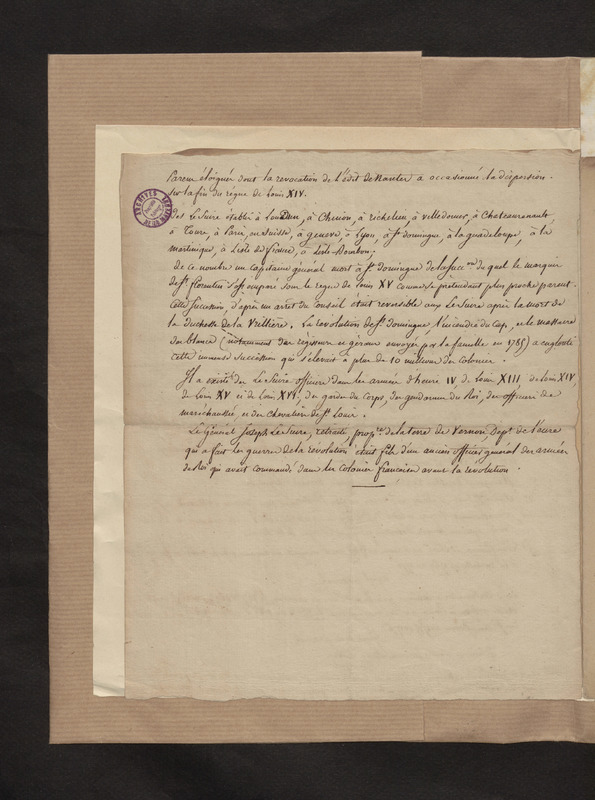 Parens éloignés dont la revocation de l'édit de Nantes a occasionné la dispersion
sur la fin du règne de Louis XIV.
Des Le Suire établis à Loudun, à Chinon, à Richelieu, à à Chateaurenault,
à Tours, à Paris, en Suisse, à geneve, à Lyon, à St domingue, à la guadeloupe, à la
martinique, à L'isle de France, à L'isle-Bourbon;
de ce nombre un Capitaine général mort à St domingue de la succon du quel le marquis
de St florentin s'est emparé sous le regne de Louis XV comme se prétendant plus proche parent.
Cette succession, d'après un arrêt du Conseil était reversible aux Le Suire après la mort de
la duchesse de la Vrillière. La révolution de St domingue, l'incendie du Cap, et le massacre
des blancs (notamment des régisseurs et gérans envoyés par la famille en 1785) a englouti
cette immense succession qui s'élevait à plus de 10 millions des Colonies.
Il a existé des Le Suire officiers dans les armées d'henri IV, de Louis XIII, de Louis XIV,
de Louis XV et de Louis XVI, des gardes du Corps, des gendarmes du Roi, des officiers de
marechaussée, et des Chevaliers de St Louis.
Le général Joseph Le Suire, retraité, propre de la terre de Vernon, Dept de l'eure
qui a fait les guerres de la révolution était fils d'un ancien officier général des armées
du Roi qui avait commandé dans les colonies françaises avant la révolution.
ARCHIVES